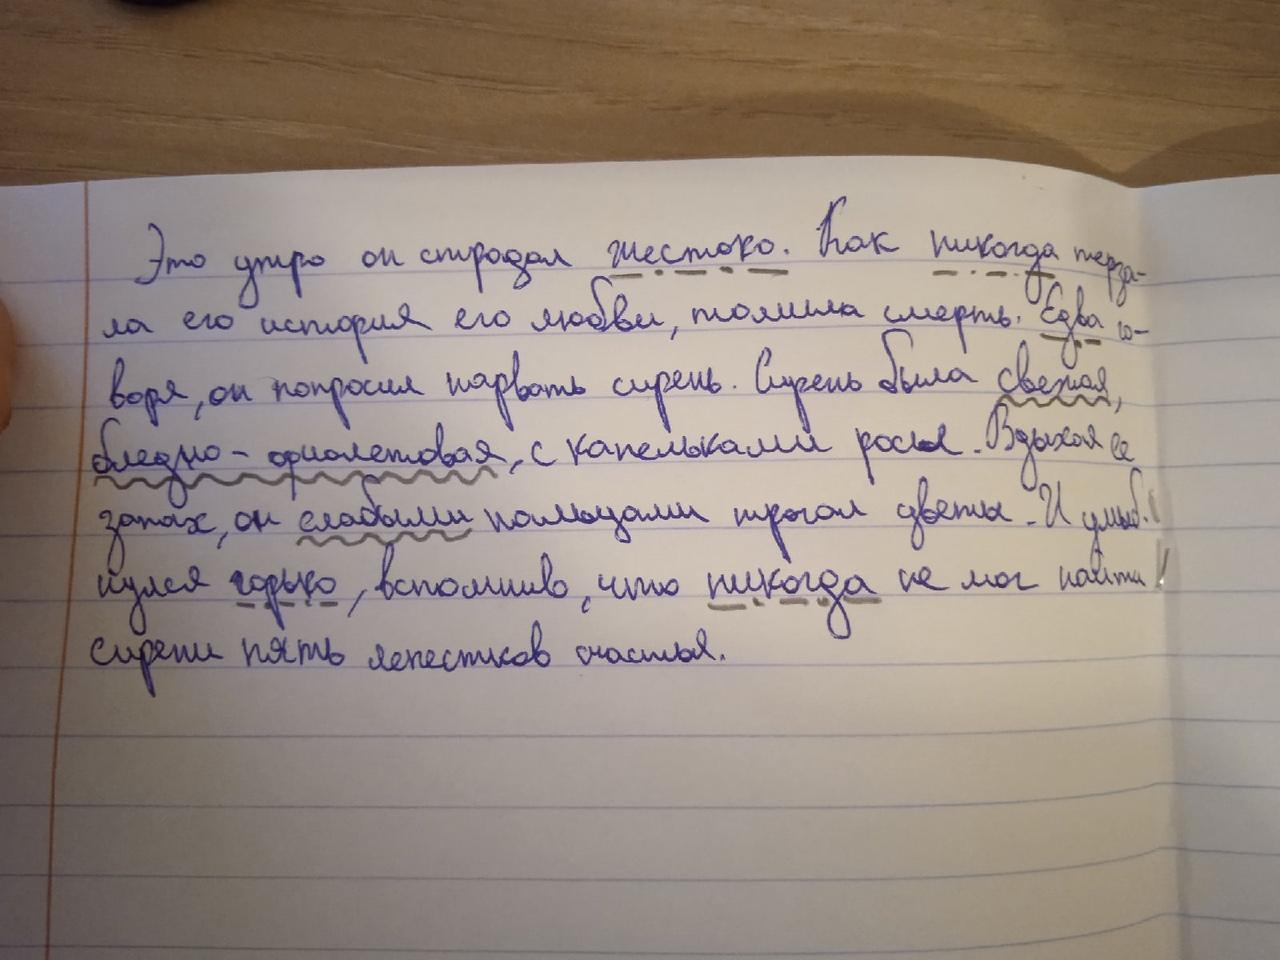 Это утро он страдал жестоко. Как никогда терза-
ла его история его любви, томила смерть. Едва го-
воря, он попросил нарвать сирень. Сирень была свежая,
бледно-фиолетовая, с капельками росы. Вдыхая её
запах, он слабыми пальцами трогал цветы. И улыб-
нулся горько, вспомнив, что никогда не мог найти
сирени пять лепестков счастья.